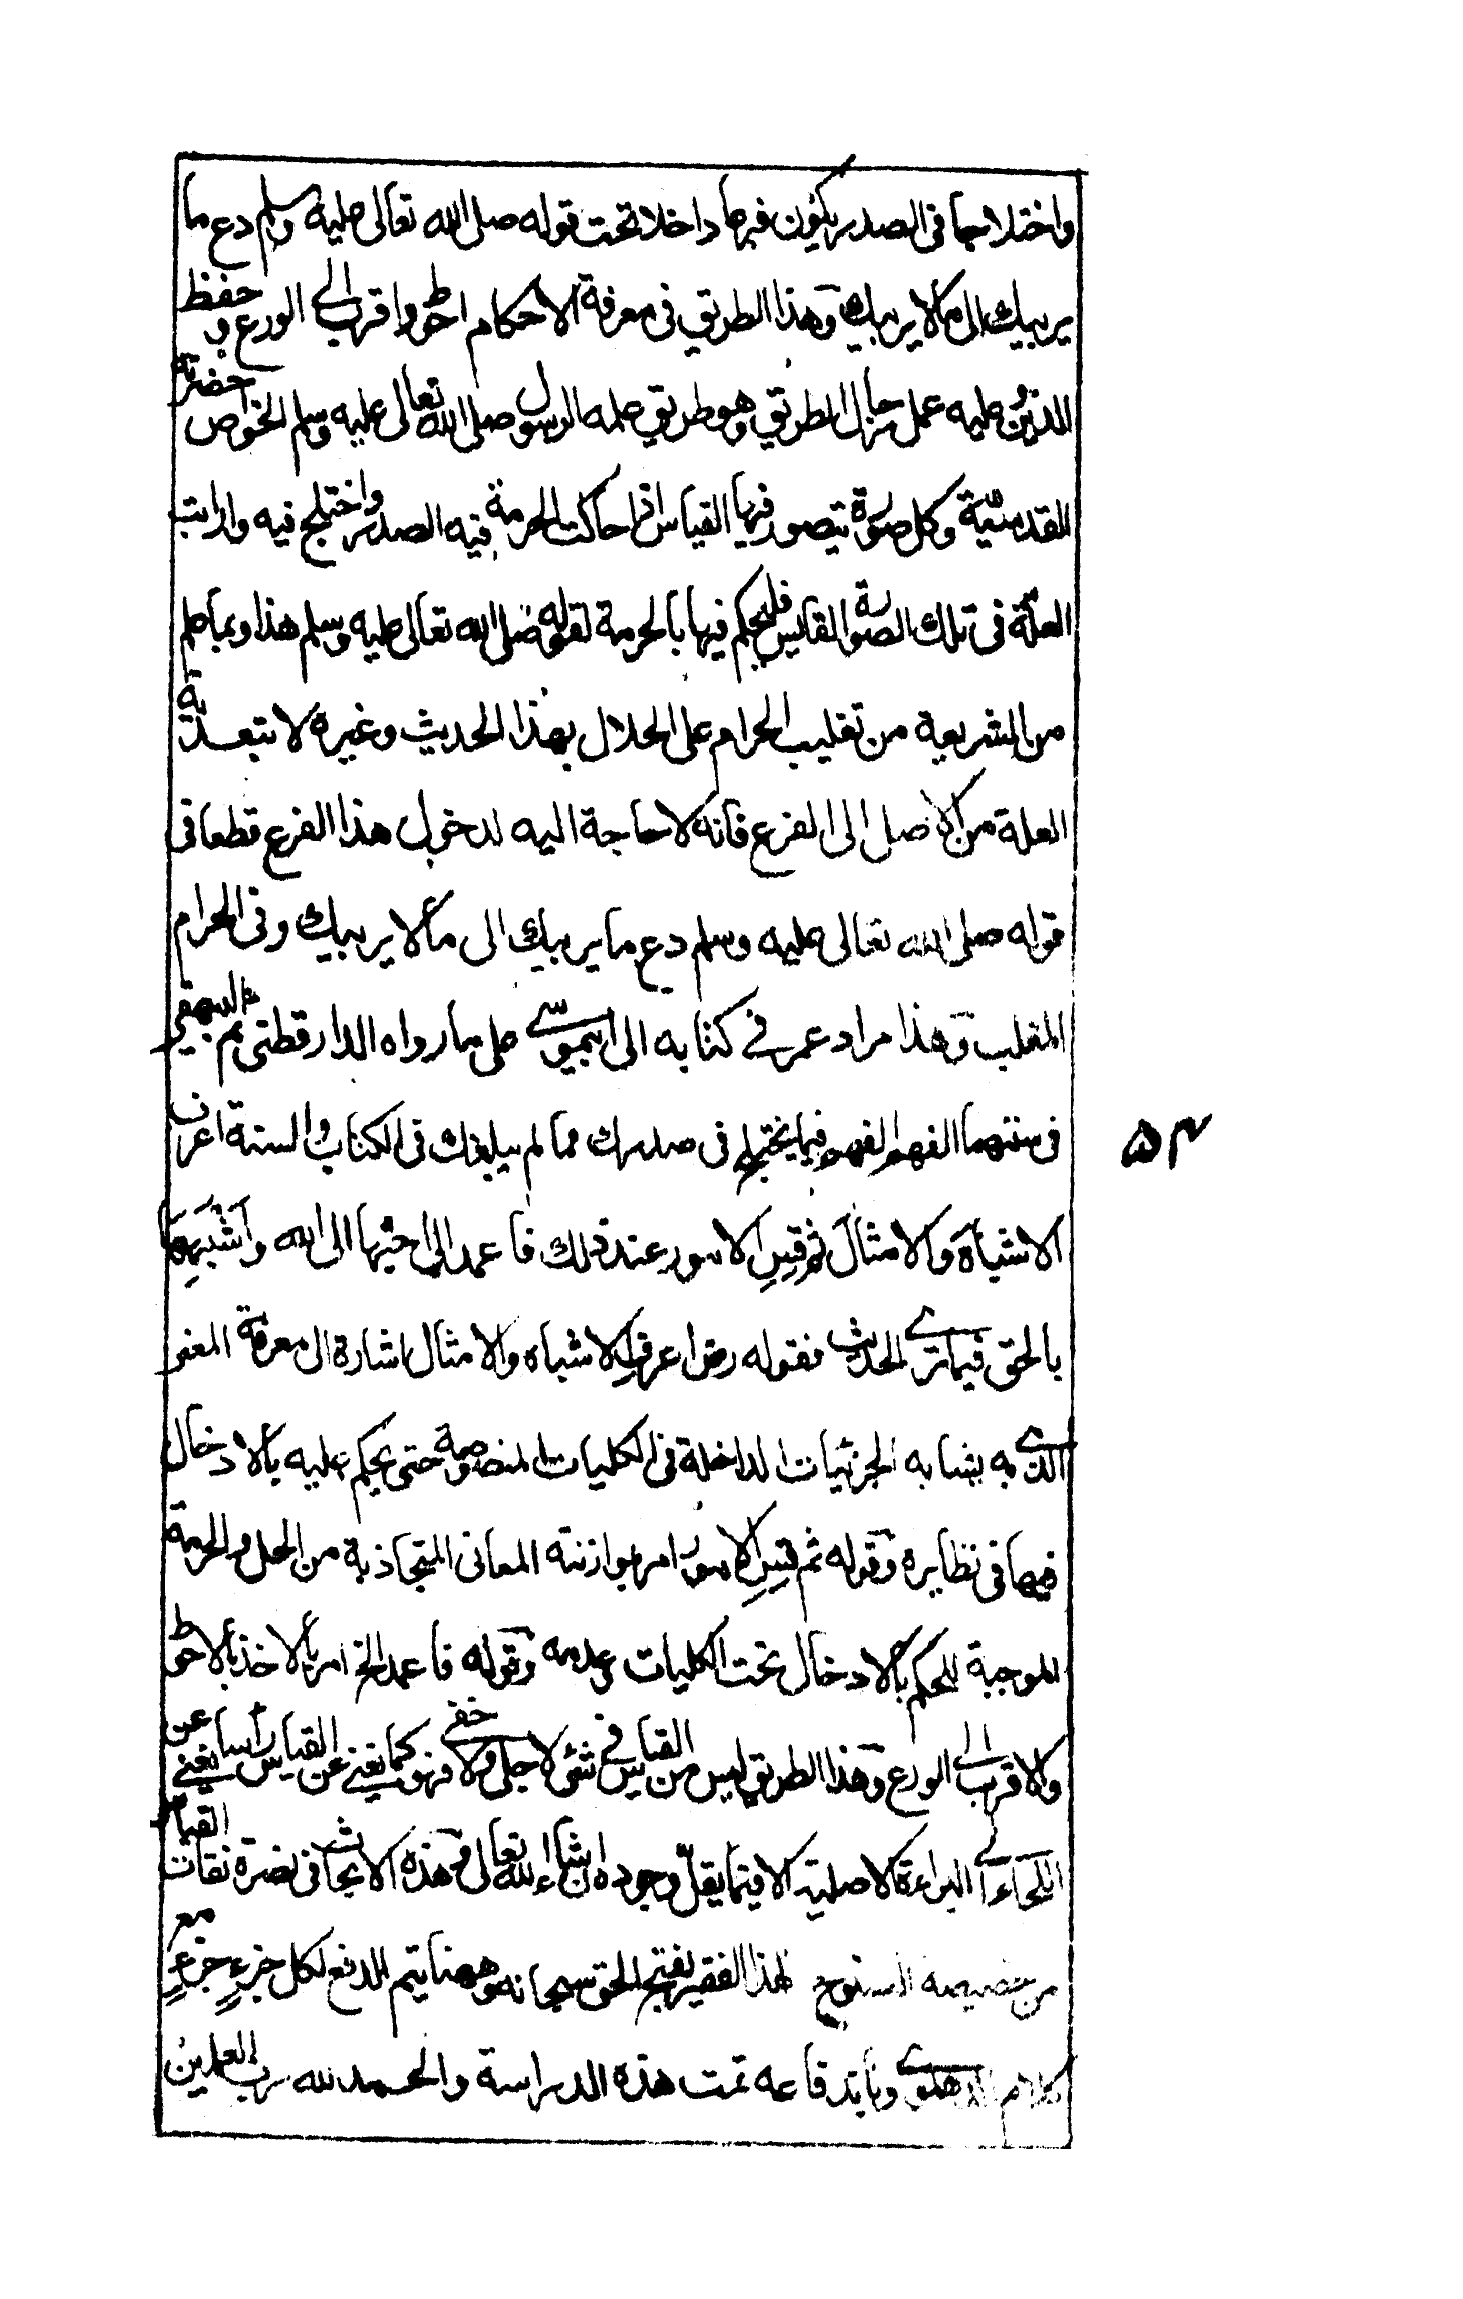 واختلاجها فى الصدر يكون غيرها داخلا تحت قوله صلى الله تعالى عليه وسلم دع ما
يريبك الى ما لا يريبك وهذا الطريق فى معرفة الاحكام احوط واقرب الى الورع وحفظ
الدين وعليه عمل رجال الطريق وهو طريق علمه الرسول صلى الله تعالى عليه وسلم الخواص حضرته
القدسية وكل صورة يتصور فيها القياس اذا حاكت الحرمة فيه الصدر واختلج فيه وارابت
العلة فى تلك الصورة القايس فليحكم فيها بالحرمة لقوله صلى الله تعالى عليه وسلم هذا وبما علم
من الشريعة من تغليب الحرام على الحلال بهذا الحديث وغيره لا بتعدية
العلة من الاصل الى الفرع فانه لا حاجة اليه لدخول هذا الفرع قطعا فى
قوله صلى الله تعالى عليه وسلم دع ما يريبك الى ما لا يريبك وفى الحرام
المغلب وهذا مراد عمر فى كتابه الى ابى موسى على ما رواه الدارقطنى ثم البيهقى
فى سننهما الفهم الفهم فيما يختلج فى صدرك مما لم يبلغك فى الكتاب والسنة اعرف
الاشباه والامثال ثم قس الامور عند ذلك فاعمد الى احبها الى الله واشبهها
بالحق فيما ترى الحديث فقوله رض اعرف الاشباه والامثال اشارة الى معرفة المعنى
الذى به يشابه الجزئيات الداخلة فى الكليات المنصوصة حتى يحكم عليه بالادخال
فيها فى نظايره وقوله ثم قس الامور امر بموازنة المعانى المتجاذبة من الحل والحرمة
الموجبة للحكم بالادخال تحت الكليات وعدمه وقوله فاعمد الخ امر بالاخذ بالاحوط
والاقرب الى الورع وهذا الطريق ليس من القياس فى شئ لا جلى ولا خفى فهو كما يغنى عن القياس راسا يغنى عن القياس
البراءة الاصلية الا فيما يقل وجوده ان شاء الله تعالى وفى هذه الابحاث فى نصرة نفات
لهذا الفقير بفتح الحق سبحانه وههنا يتم الدفع لكل جزء جزء مع
كلام الدهلوى تمت هذه الدراسة والحمد لله رب العلمين
۵۴